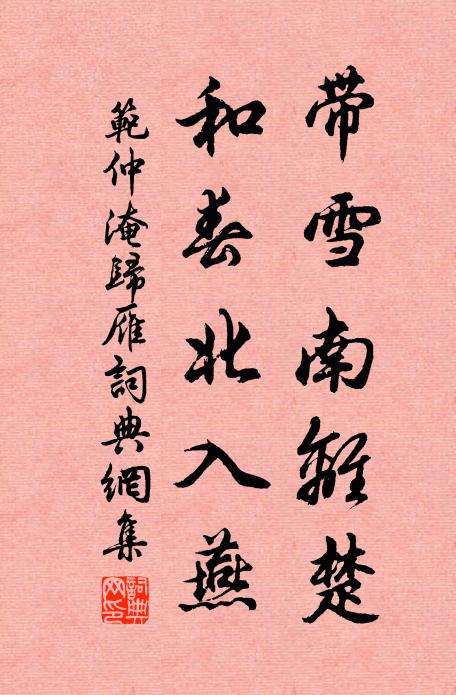 带雪南離楚
和春北入燕
範仲淹歸雁詞典網集
詞典網印